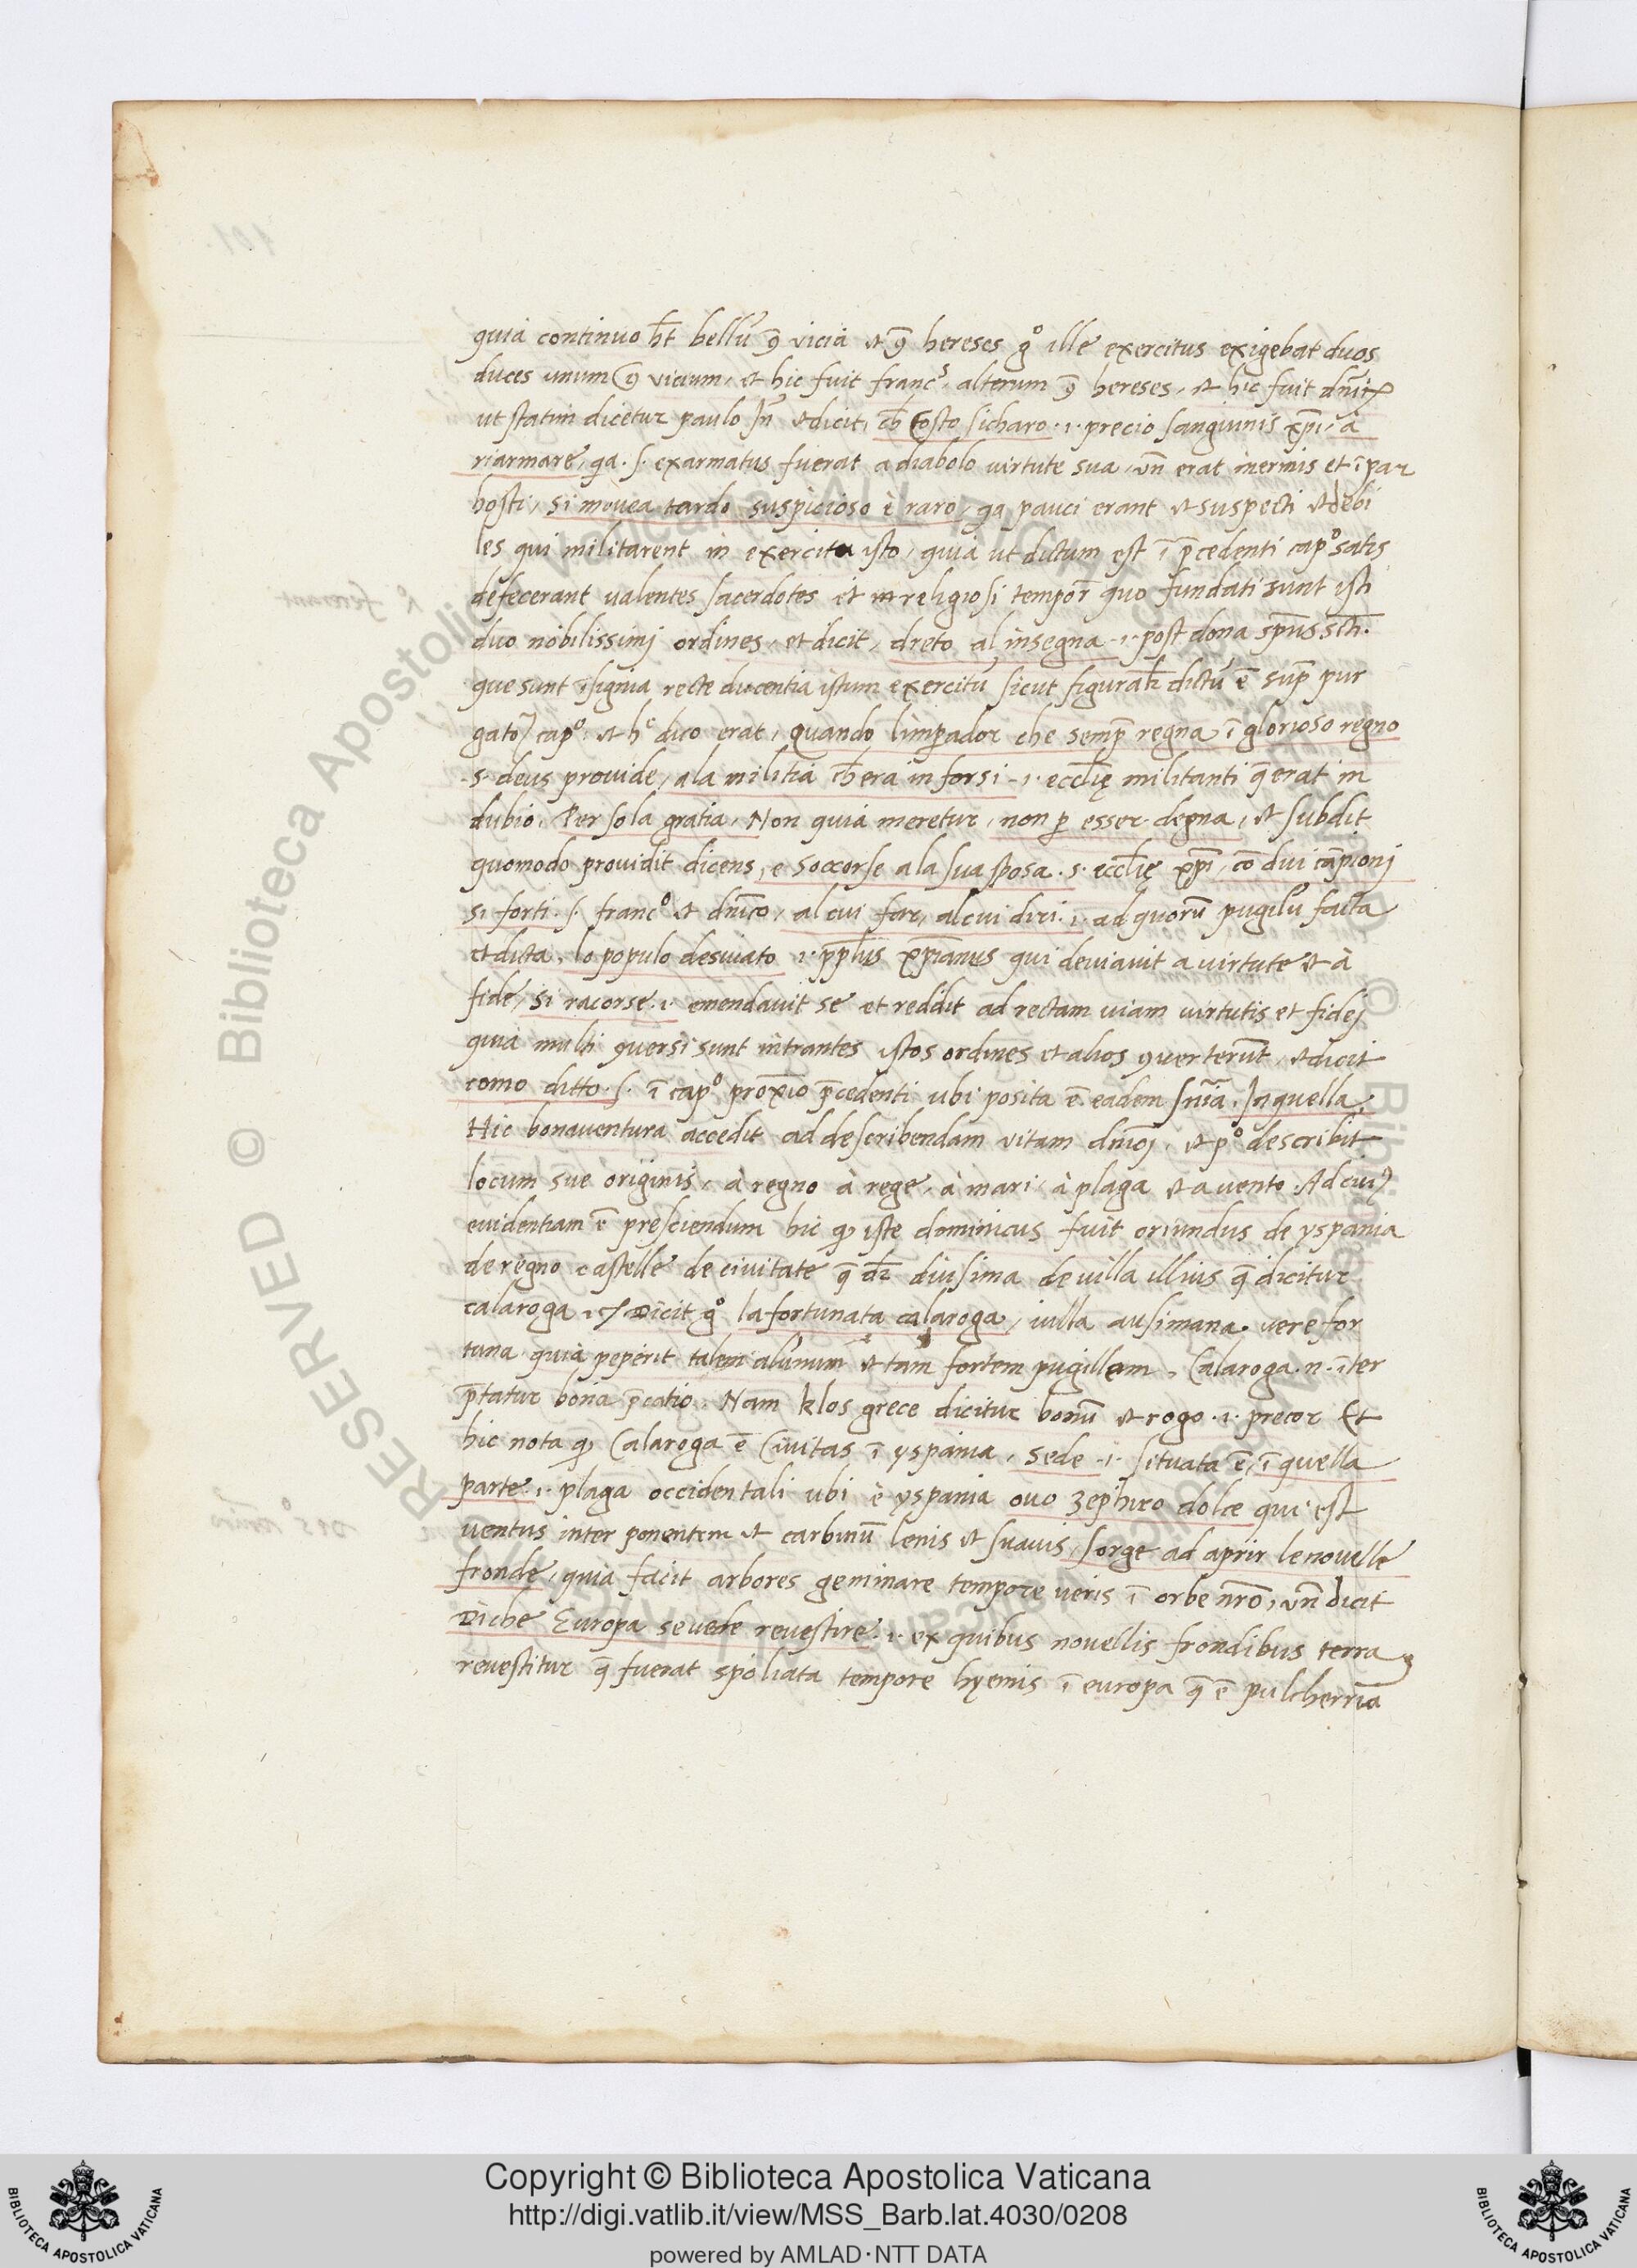 quia continuo ħt bellũ ꝯ̃ vicia et ꝯ̃ hereses g° ille exercitus exigebat duos
duces unum ꝯ̃ vicium, et hic fuit francˢ, alterum ꝯ̃ hereses, et hic fuit
ut statim dicetur paulo Jñ et dicit, cħ costo si charo .i. precio sanguinis xp̃i, a
riarmare, qa .s. exarmatus fuerat a diabolo virtute sua, vñ erat inermis et ĩpar
hosti, si movea tardo suspicioso è raro, qa pauci erant et suspecti et debi
les qui militarent in exercitu isto, quia ut dictum est ĩ p̃cedenti cap° satis
defecerant valentes sacerdotes et religiosi tempor̃ quo fundati sunt isti
duo nobilissimj ordines, et dicit, dreto al insegna .i. post dona sp̃us sc̃ti.
que sunt ĩsignia recte ducentia istum exercitũ sicut figuraƚr dictũ ẽ sup̃ pur
gatoɟ cap°, et hᶜ dico erat, quando limp̱ador che semp̃ regna ĩ glorioso regno
.s. deus provide, a la militia cħ era in forsi .i. eccƚię militanti q̃ erat in
dubio, Per sola gratia, Non quia meretur, non p̱ esser degna, et subdit
quomodo providit dicens, e soccorse a la sua sposa .s. eccƚię xp̃i, cõ dui cãpionj
si forti .s. franc° et dñico, al cui far, al cui diri .i. ad quorũ pugilũ facta
et dicta, lo populo desviato .i. pp̃lus xp̃ianus qui deviavit a virtute et à
fide, si racorse .i. emendavit se et reddit ad rectam viam virtutis et fidej
quia multi ꝯversi sunt intrantes istos ordines et alios ꝯverterũt, et dicit
como ditto .s. ĩ cap° proxĩo p̃cedenti ubi posita ẽ eadem sñia. In quella,
Hic bonaventura accedit ad describendam vitam dñicj, et p° describit
locum sue originis, à regno à rege, à mari, à plaga et a vento. Ad cuiɟ
evidentiam ẽ presciendum hic qꝫ iste dominicus fuit oriundus de yspania
de regno castelle de civitate q̃ dr̃ diusima de villa illius q̃ dicitur
calaroga, Dicit g° la fortunata calaroga, iulla ausimana. vere for
tuna quia peperit talem alũnum et tam fortem pugillem, Calaroga .n. ĩter
p̃tatur bona p̃catio. Nam klos grece dicitur bonũ et rogo .i. precor Et
hic nota qꝫ Calaroga ẽ Civitas ĩ yspania, sede .i. situata ẽ, ĩ quella
parte .i. plaga occidentali ubi è yspania ovo zephiro dolce qui est
ventus inter ponentem et carbinũ lenis et suavis, sorge ad aprir le novelle
fronde, quia facit arbores geminare tempore veris ĩ orbe nr̃o, vñ dicit
Di che Europa se vede revestire .i. ex quibus novellis frondibus terra
revestitur q̃ fuerat spoliata tempore hyemis ĩ europa q̃ ẽ pulcherrĩa
RESERVED © Biblioteca Apostolica Vaticana ALL
Copyright © Biblioteca Apostolica Vaticana
http://digi.vatlib.it/view/MSS_Barb.lat.4030/0208
powered by AMLAD·NTT DATA
BIBLIOTECA APOSTOLICA VATICANA
BIBLIOTECA APOSTOLICA VATICANA